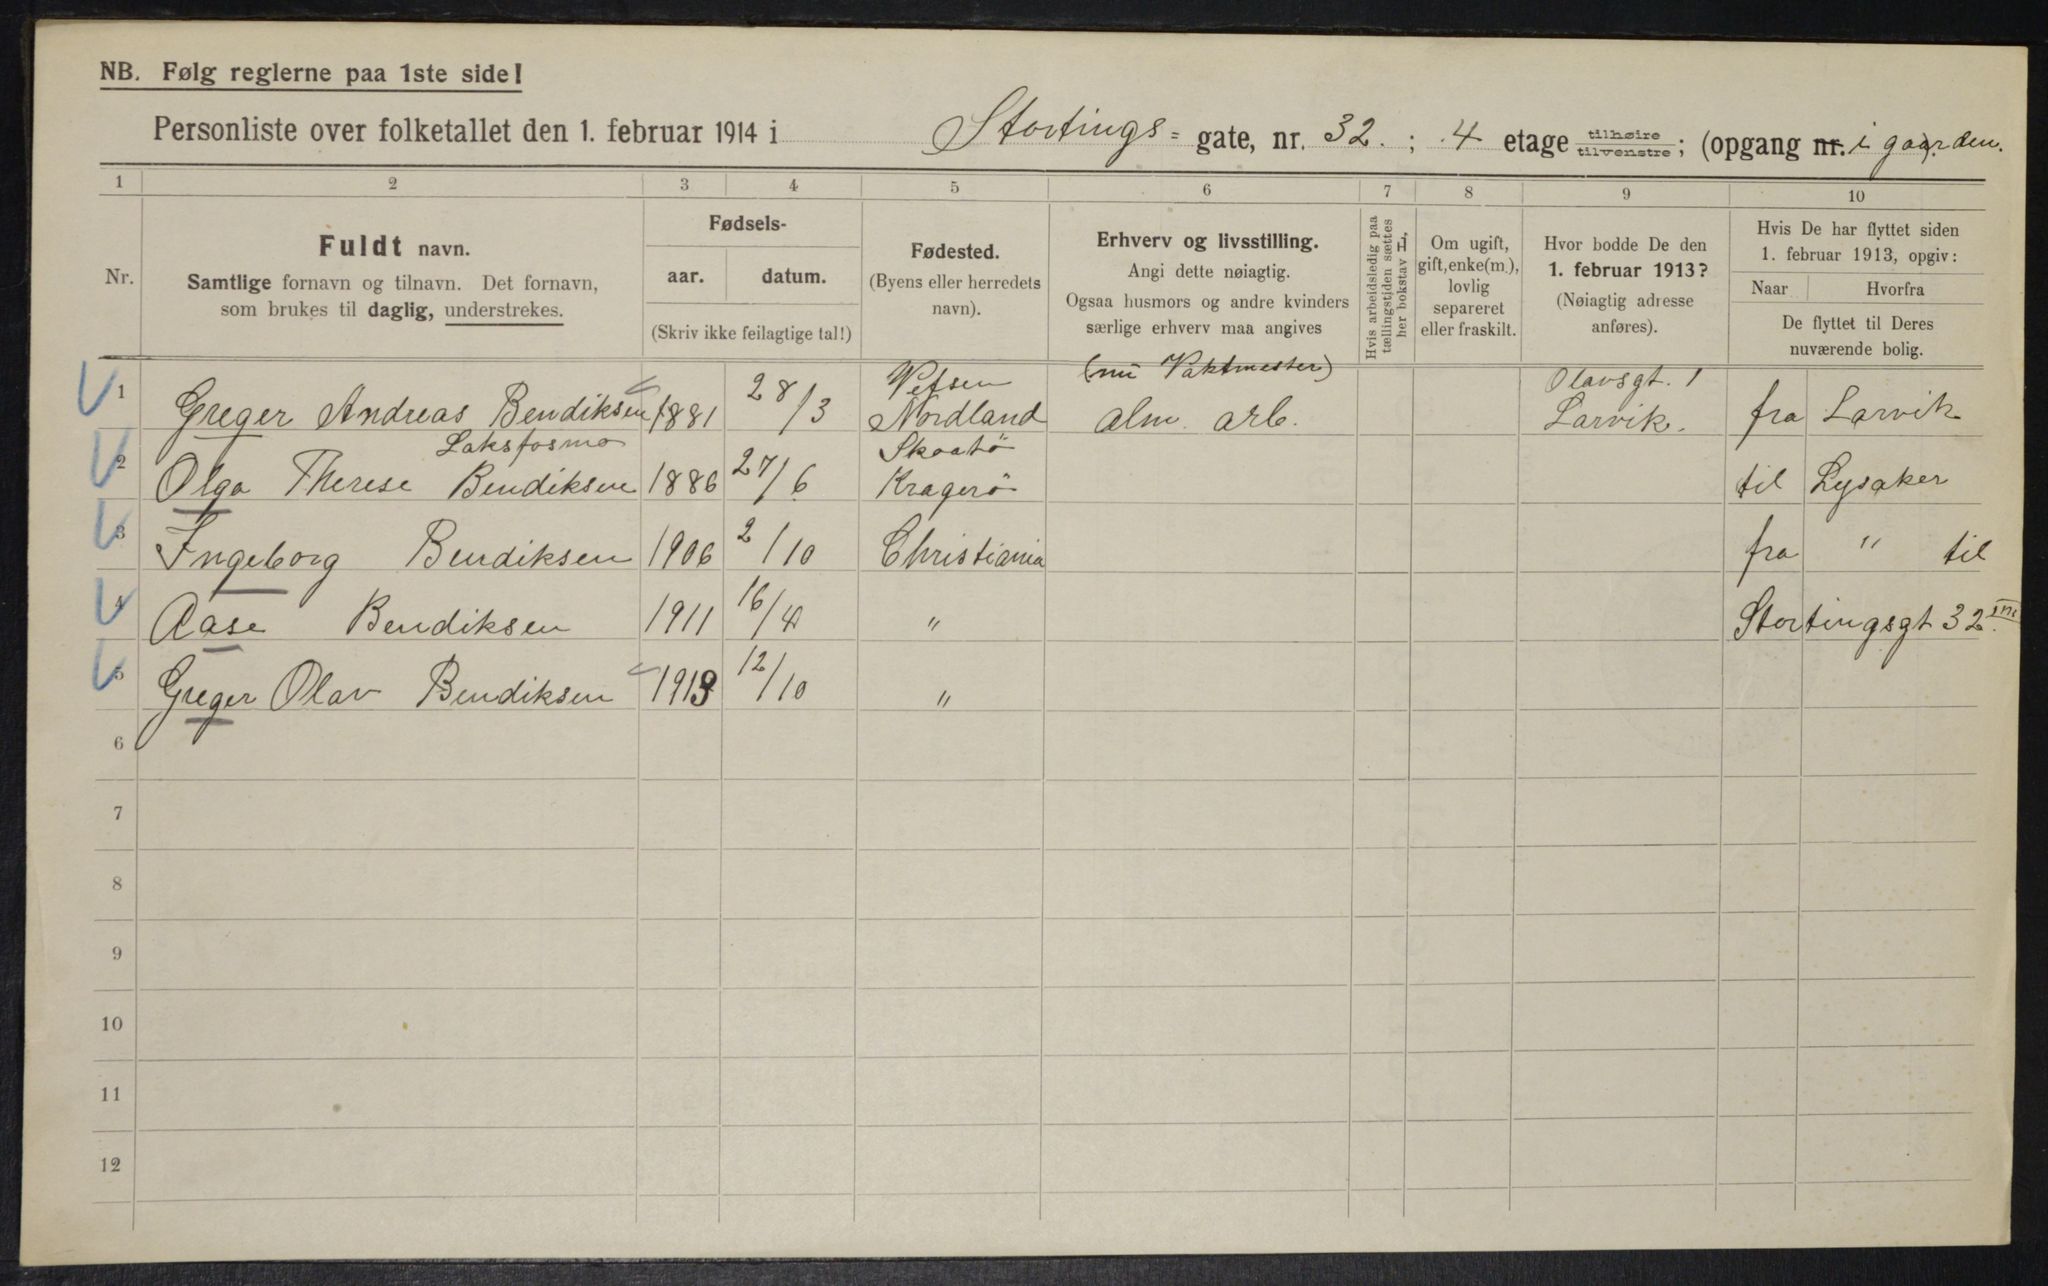 NB. Følg reglerne paa 1ste side!
Personliste over folketallet den 1. februar 1914 i Stortings= gate, nr. 32. ; 4 etage tilhøire tilvenstre ; (opgang nr. i gaarden.
1 2 3 4 5 6 7 8 9 10
Nr.
Fuldt navn.
Samtlige fornavn og tilnavn. Det fornavn,
som brukes til daglig, understrekes.
Fødsels-
aar. datum.
(Skriv ikke feilagtige tal!)
Fødested.
(Byens eller herredets
navn).
Erhverv og livsstilling.
Angi dette nøiagtig.
Ogsaa husmors og andre kvinders
særlige erhverv maa angives
Hvis arbeidsledig paa
tællingstiden sættes
her bokstav L,
Om ugift,
gift, enke(m.),
lovlig
separeret
eller fraskilt.
Hvor bodde De den
1. februar 1913?
(Nøiagtig adresse
anføres).
Hvis De har flyttet siden
1. februar 1913, opgiv:
Naar Hvorfra
De flyttet til Deres
nuværende bolig.
Vefsen (nu Vaktmester) Olavsgt. 1
1 Greger Andreas Bendiksen 1881 28/3 Nordland alm. arb. Larvik. fra Larvik
Laksfosmo Skaatö
2 Olga Therese Bendiksen 1886 27/6 Kragerö til Lysaker
3 Ingeborg Bendiksen 1906 2/10 Christiania fra " til
4 Aase Bendiksen 1911 16/4 " Stortingsgt 32
5 Greger Olav Bendiksen 1913 12/10 "
6
7
8
9
10
11
12